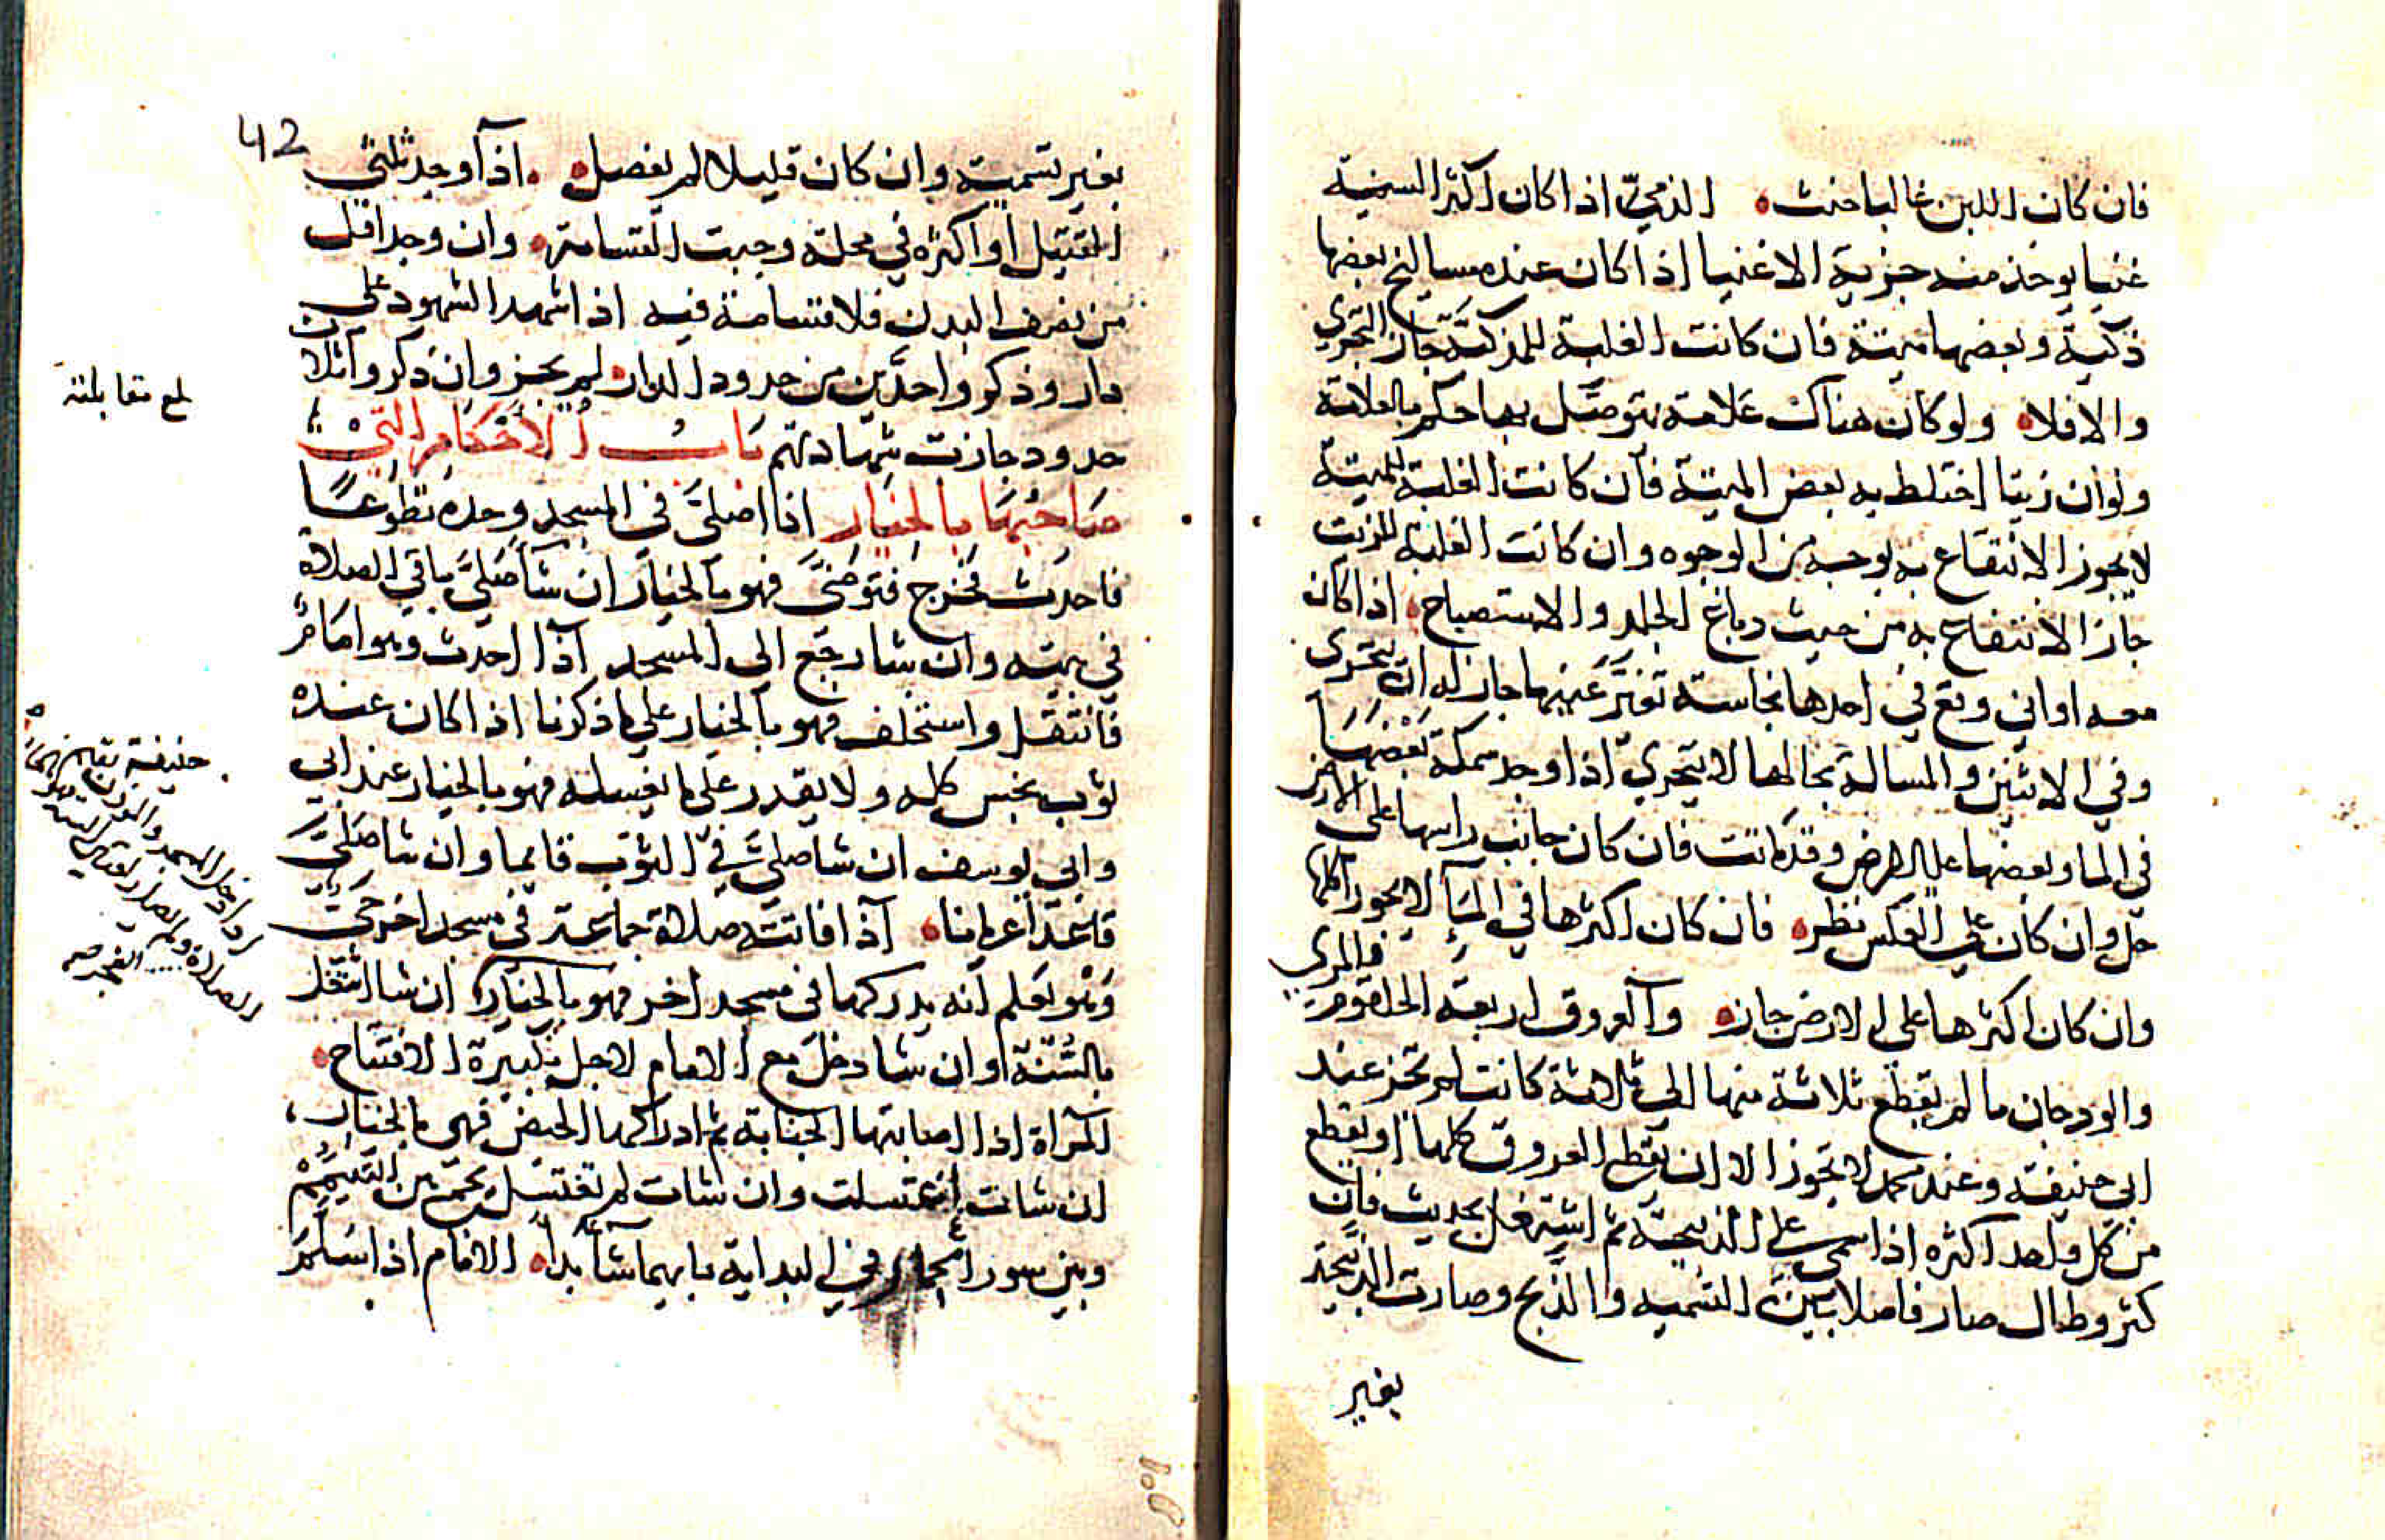 فان كان اللبن غالبا حنث الذمي اذا كان اكثر السنة
غنيا يوخذ منه جزية الاغنيا اذا كان عنده مساليخ بعضها
ذكية وبعضها ميتة فان كانت الغلبة للمذكية جاز التحري
والا فلا ولو كان هناك علامة يتوصل بها حكم بالعلامة
ولو ان زيتا اختلط به بعض الميتة فان كانت الغلبة للميتة
لا يجوز الانتفاع به بوجه من الوجوه وان كانت الغلبة للزيت
جاز الانتفاع به من حيث دباغ الجلد والاستصباح اذا كان
معه اواني وقع في احدها نجاسة عينها جاز له ان يتحرى
وفي الاثنين والمسالة بحالها لا يتحري اذا وجد سمكة بعضها
في الما وبعضها علي الارض وقد ماتت فان كان جانب راسها على الارض
حل وان كان علي العكس نظر فان كان اكثرها في الما لا يجوز اكلها
وان كان اكثرها على الارض جاز والعروق اربعة الحلقوم والمري
والودجان ما لم يقطع ثلاثة منها الي ثلاثة كانت لم تجز عند
ابي حنيفة وعند محمد لا يجوز الا ان يقطع العروق كلها او يقطع
من كل واحد اكثره اذا سمى علي الذبيحة ثم اشتغل بحديث فان
كثر وطال صار فاصلا بين التسميه والذبح وصارت الذبيحة
بغير
42
بغير تسمية وان كان قليلا لم يفصل اذا وجد ثلثي
القتيل او اكثره في محلة وجبت القسامة وان وجد اقل
من نصف البدن فلا قسامة فيه اذا شهد الشهود على
دار وذكروا حدين من حدود الدار لم يجز وان ذكروا ثلاث
حدود جازت شهادتهم باب الاحكام التي
صاحبها بالخيار اذا صلى في المسجد وحده تطوعا
فاحدث فخرج فتوضى فهو بالخيار ان شا صلى باقي الصلاة
في بيته وان شا رجع الى المسجد اذا احدث وهو امام
فانتقل واستخلف فهو بالخيار علي ما ذكرنا اذا كان عنده
ثوب نجس كله ولا يقدر على ما يغسله فهو بالخيار عند ابي
وابي يوسف ان شا صلى في الثوب قايما وان شا صلى
قاعدا عريانا اذا فاتته صلاة جماعة في مسجد اخر حي
وهو يعلم انه يدركها في مسجد اخر فهو بالخيار ان شا اشتغل
بالسنة وان شا دخل مع الامام لاجل تكبيرة الافتتاح
المراة اذا اصابتها الجنابة ثم ادركها الحيض فهي بالخيار
ان شات اغتسلت وان شات لم تغتسل من التيمم
وبين سور الحمار في البداية بايهما شا بدا الامام اذا سلم
بلغ مقابلته
حنيفة